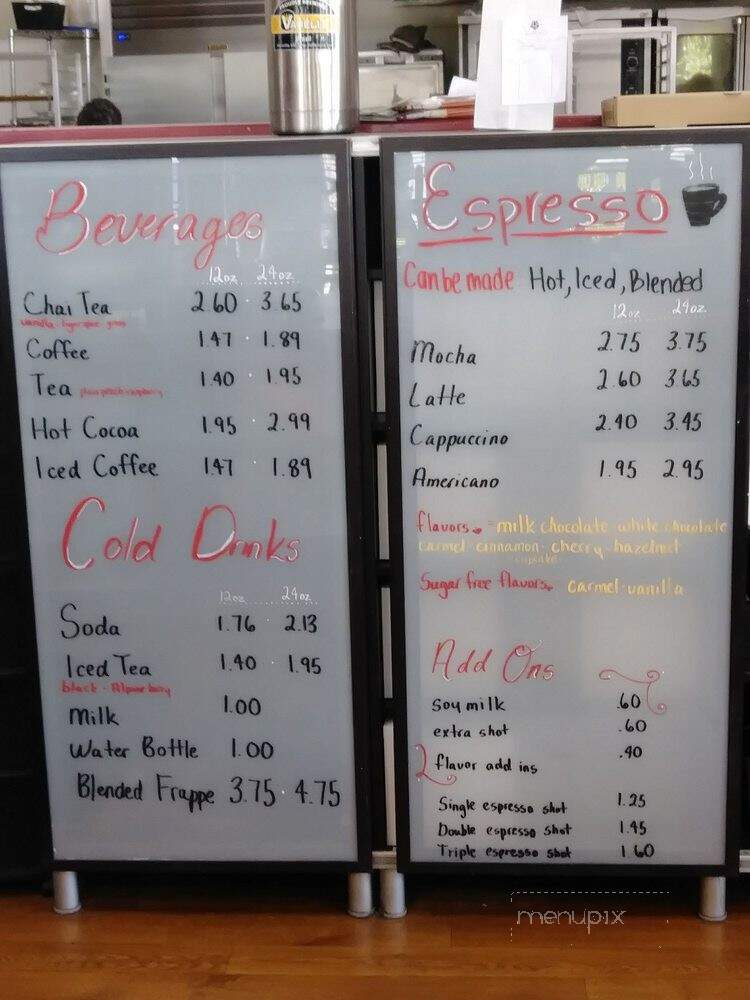 Beverages
12oz 24oz
Chai Tea 2.60 3.65
vanilla
Coffee 1.47 1.89
Tea 1.40 1.95
Hot Cocoa 1.95 2.99
Iced Coffee 1.47 1.89
Cold Drinks
12oz 24oz
Soda 1.76 2.13
Iced Tea 1.40 1.95
black
Milk 1.00
Water Bottle 1.00
Blended Frappe 3.75 4.75
Espresso
Can be made Hot, Iced, Blended
12oz 24oz
Mocha 2.75 3.75
Latte 2.60 3.65
Cappuccino 2.40 3.45
Americano 1.95 2.95
flavors milk chocolate white chocolate
carmel cinnamon cherry hazelnut
cupcake
Sugar free flavors carmel vanilla
Add Ons
soy milk .60
extra shot .60
flavor add ins .40
Single espresso shot 1.25
Double espresso shot 1.45
Triple espresso shot 1.60
menupix